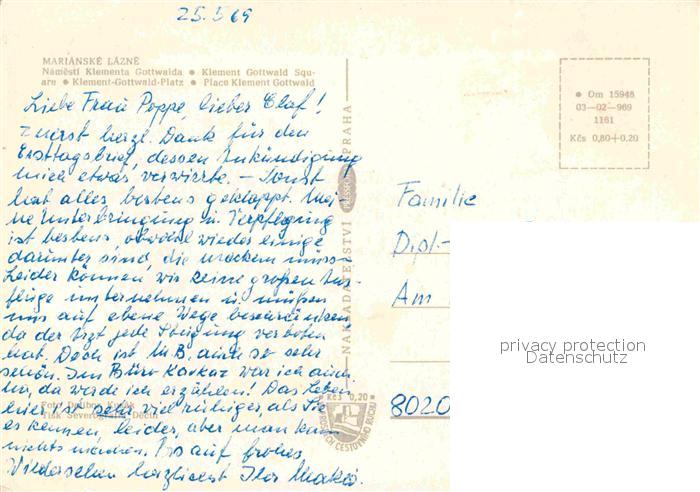 25.5.69
MARIÁNSKÉ LÁZNĚ
Náměstí Klementa Gottwalda ● Klement Gottwald Squ-
are ● Klement-Gottwald-Platz ● Place Klement Gottwald
Liebe Frau Poppe, lieber Olaf!
Zuerst herzl. Dank für den
Ersttagsbrief, dessen Ankündigung
mich etwas verwirrte. – Sonst
hat alles bestens geklappt. Mei-
ne Unterbringung u. Verpflegung
ist bestens, obwohl wieder einige
darunter sind, die meckern müss-
Leider können wir keine großen Aus-
flüge unternehmen u. müssen
uns auf ebene Wege beschränken
da der Arzt jede Steigung verboten
hat. Doch ist M.B. auch so sehr
schön. Im Büro war ich auch
da werde ich erzählen! Das Leben
hier ist sehr viel ruhiger, als Sie
es kennen, leider, aber man kann
nichts machen. Bis auf frohes
Wiedersehen herzlichst Ihr
Foto Dalibor
Tisk Severografia Děčín
NAKLADATELSTVÍ PRAHA
Kčs 0,20
CESTOVNÍHO RUCHU
● Om 15948
03-02-969
1161
Kčs 0,80+0,20
Familie
Dipl.-
Am
8020
privacy protection
Datenschutz